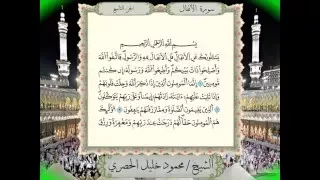 سورة الأنفال
الجزء التاسع
بِسْمِ ٱللَّهِ ٱلرَّحْمَٰنِ ٱلرَّحِيمِ
يَسْـَٔلُونَكَ عَنِ ٱلْأَنفَالِ قُلِ ٱلْأَنفَالُ لِلَّهِ وَٱلرَّسُولِ فَٱتَّقُوا۟ ٱللَّهَ
وَأَصْلِحُوا۟ ذَاتَ بَيْنِكُمْ وَأَطِيعُوا۟ ٱللَّهَ وَرَسُولَهُۥٓ إِن كُنتُم
مُّؤْمِنِينَ ١ إِنَّمَا ٱلْمُؤْمِنُونَ ٱلَّذِينَ إِذَا ذُكِرَ ٱللَّهُ وَجِلَتْ قُلُوبُهُمْ
وَإِذَا تُلِيَتْ عَلَيْهِمْ ءَايَٰتُهُۥ زَادَتْهُمْ إِيمَٰنًا وَعَلَىٰ رَبِّهِمْ يَتَوَكَّلُونَ
٢ ٱلَّذِينَ يُقِيمُونَ ٱلصَّلَوٰةَ وَمِمَّا رَزَقْنَٰهُمْ يُنفِقُونَ ٣ أُو۟لَٰٓئِكَ
هُمُ ٱلْمُؤْمِنُونَ حَقًّا لَّهُمْ دَرَجَٰتٌ عِندَ رَبِّهِمْ وَمَغْفِرَةٌ وَرِزْقٌ
الشيخ / محمود خليل الحصري